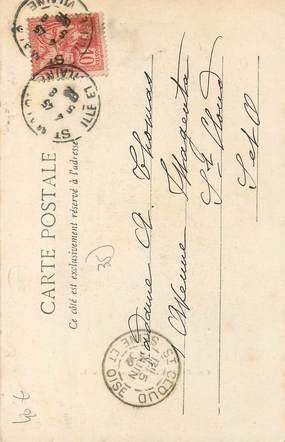 CARTE POSTALE
Ce côté est exclusivement réservé à l'adresse
Madame A. Thomas
Avenue Magenta
St Cloud
S et O
10
ILLE ET VILAINE
ST CLOUD
SEINE ET OISE
35